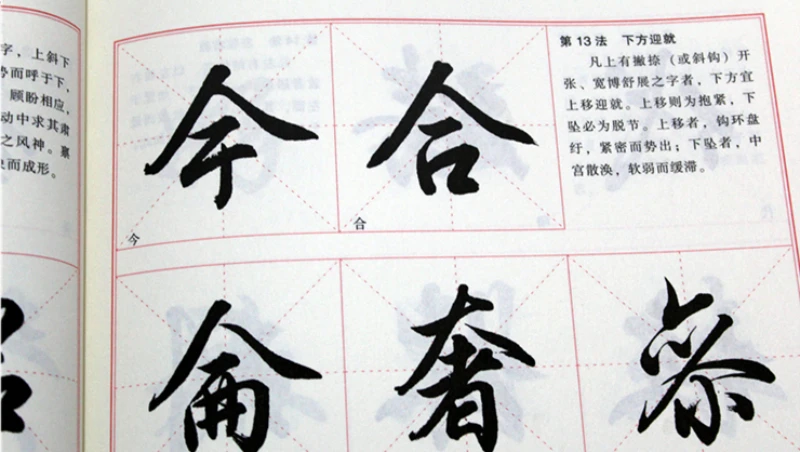 字，上斜下
势而呼于下，
顾盼相应，
动中求其肃
之风神。
而成形。
今 合
合
第13法 下方迎就
凡上有撇捺（或斜钩）开
张、宽博舒展之字者，下方宜
上移迎就。上移则为抱紧，下
坠必为脱节。上移者，钩环盘
纡，紧密而势出；下坠者，中
宫散涣，软弱而缓滞。
侖 奢